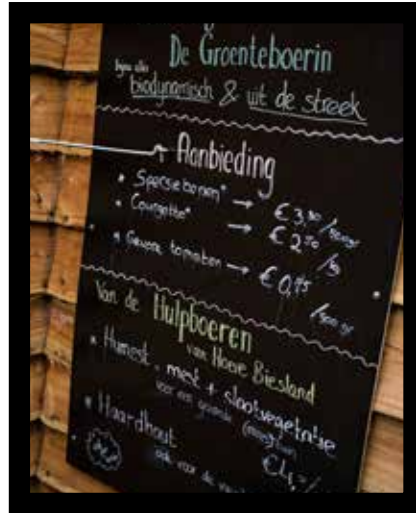 De Groenteboerin
bijna alles
biodynamisch & uit de streek
Aanbieding
* Sperziebonen* → € 3,80 /500gr
* Courgette* → € 2,50 /kg
* Gewone tomaten → € 0,95 /500gr
Van de Hulpboeren
van Hoeve Biesland
* Humest, mest + slootvegetatie
voor een gezonde
* Haardhout
ook voor de